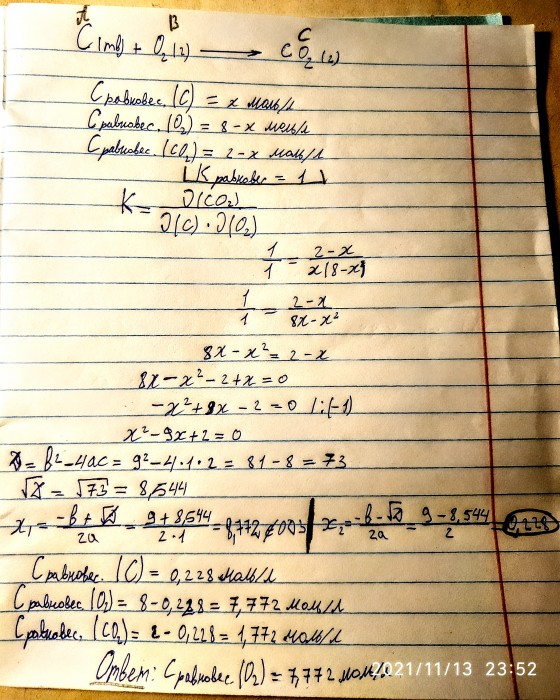 A B C
C(тв) + O₂(г) ⟶ CO₂(г)
Cравновес.(C) = x моль/л
Cравновес.(O₂) = 8 - x моль/л
Cравновес.(CO₂) = 2 - x моль/л
Kравновес = 1
K = J(CO₂) / J(C) · J(O₂)
1/1 = 2-x / x(8-x)
1/1 = 2-x / 8x-x²
8x - x² = 2 - x
8x - x² - 2 + x = 0
-x² + 9x - 2 = 0 /:(-1)
x² - 9x + 2 = 0
D = b² - 4ac = 9² - 4·1·2 = 81 - 8 = 73
√D = √73 = 8,544
x₁ = -b + √D / 2a = 9 + 8,544 / 2·1 = 8,772 | x₂ = -b - √D / 2a = 9 - 8,544 / 2 = 0,228
Cравновес.(C) = 0,228 моль/л
Cравновес.(O₂) = 8 - 0,228 = 7,772 моль/л
Cравновес.(CO₂) = 2 - 0,228 = 1,772 моль/л
Ответ: Cравновес(O₂) = 7,772 моль/л
2021/11/13 23:52